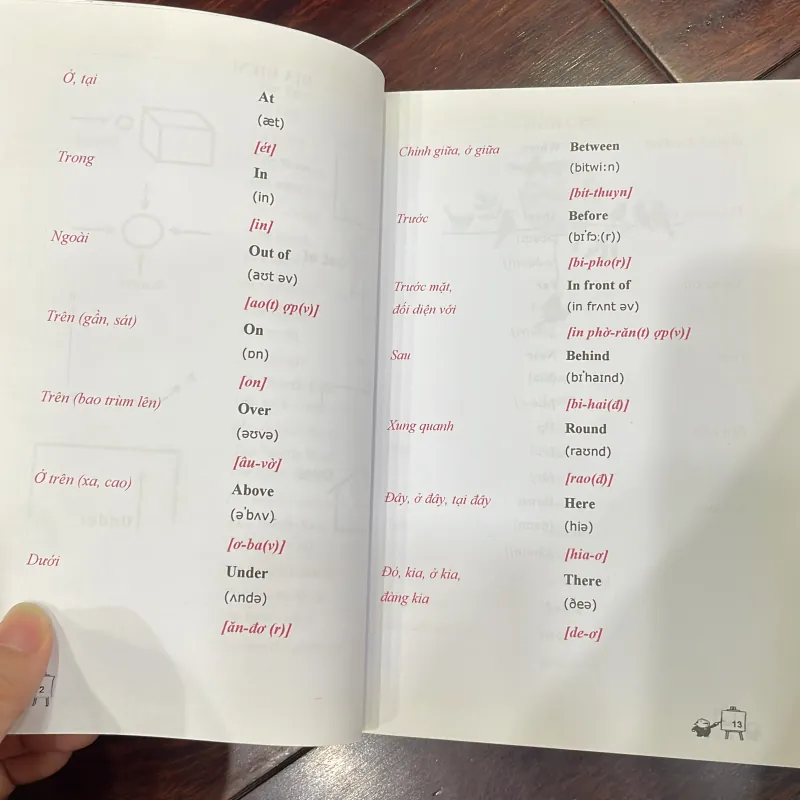 Ở, tại
At
(æt)
[ét]
Trong
In
(in)
[in]
Ngoài
Out of
(aʊt əv)
[ao(t) ợp(v)]
Trên (gần, sát)
On
(ɒn)
[on]
Trên (bao trùm lên)
Over
(əʊvə)
[âu-vờ]
Ở trên (xa, cao)
Above
(ə'bʌv)
[ơ-ba(v)]
Dưới
Under
(ʌndə)
[ăn-đơ (r)]
2
Chính giữa, ở giữa
Between
(bitwi:n)
[bít-thuyn]
Trước
Before
(bɪ'fɔ:(r))
[bi-pho(r)]
Trước mặt,
đối diện với
In front of
(in frʌnt əv)
[in phờ-răn(t) ợp(v)]
Sau
Behind
(bɪ'haɪnd)
[bi-hai(đ)]
Xung quanh
Round
(raʊnd)
[rao(đ)]
Đây, ở đây, tại đây
Here
(hiə)
[hia-ơ]
Đó, kia, ở kia,
đàng kia
There
(ðeə)
[de-ơ]
13